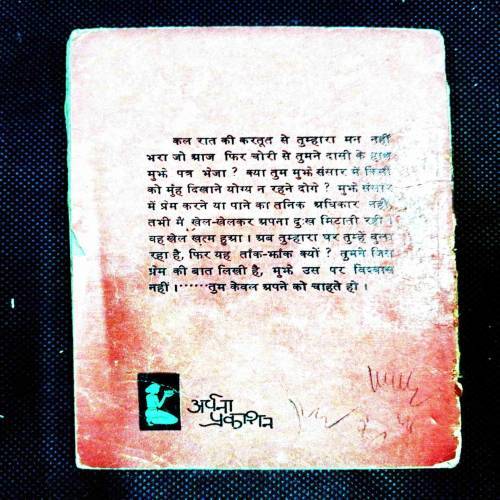 कल रात की करतूत से तुम्हारा मन नहीं
भरा जो आज फिर चोरी से तुमने दासी के हाथ
मुझे पत्र भेजा ? क्या तुम मुझे संसार में किसी
को मुंह दिखाने योग्य न रहने दोगे ? मुझे संसार
में प्रेम करने या पाने का तनिक अधिकार नहीं,
तभी मैं खेल-खेलकर अपना दुःख मिटाती रही ।
वह खेल खत्म हुआ । अब तुम्हारा घर तुम्हें बुला
रहा है, फिर यह ताँक-झाँक क्यों ? तुमने जिस
प्रेम की बात लिखी है, मुझे उस पर विश्वास
नहीं ।······तुम केवल अपने को चाहते हो ।
अर्चना
प्रकाशन